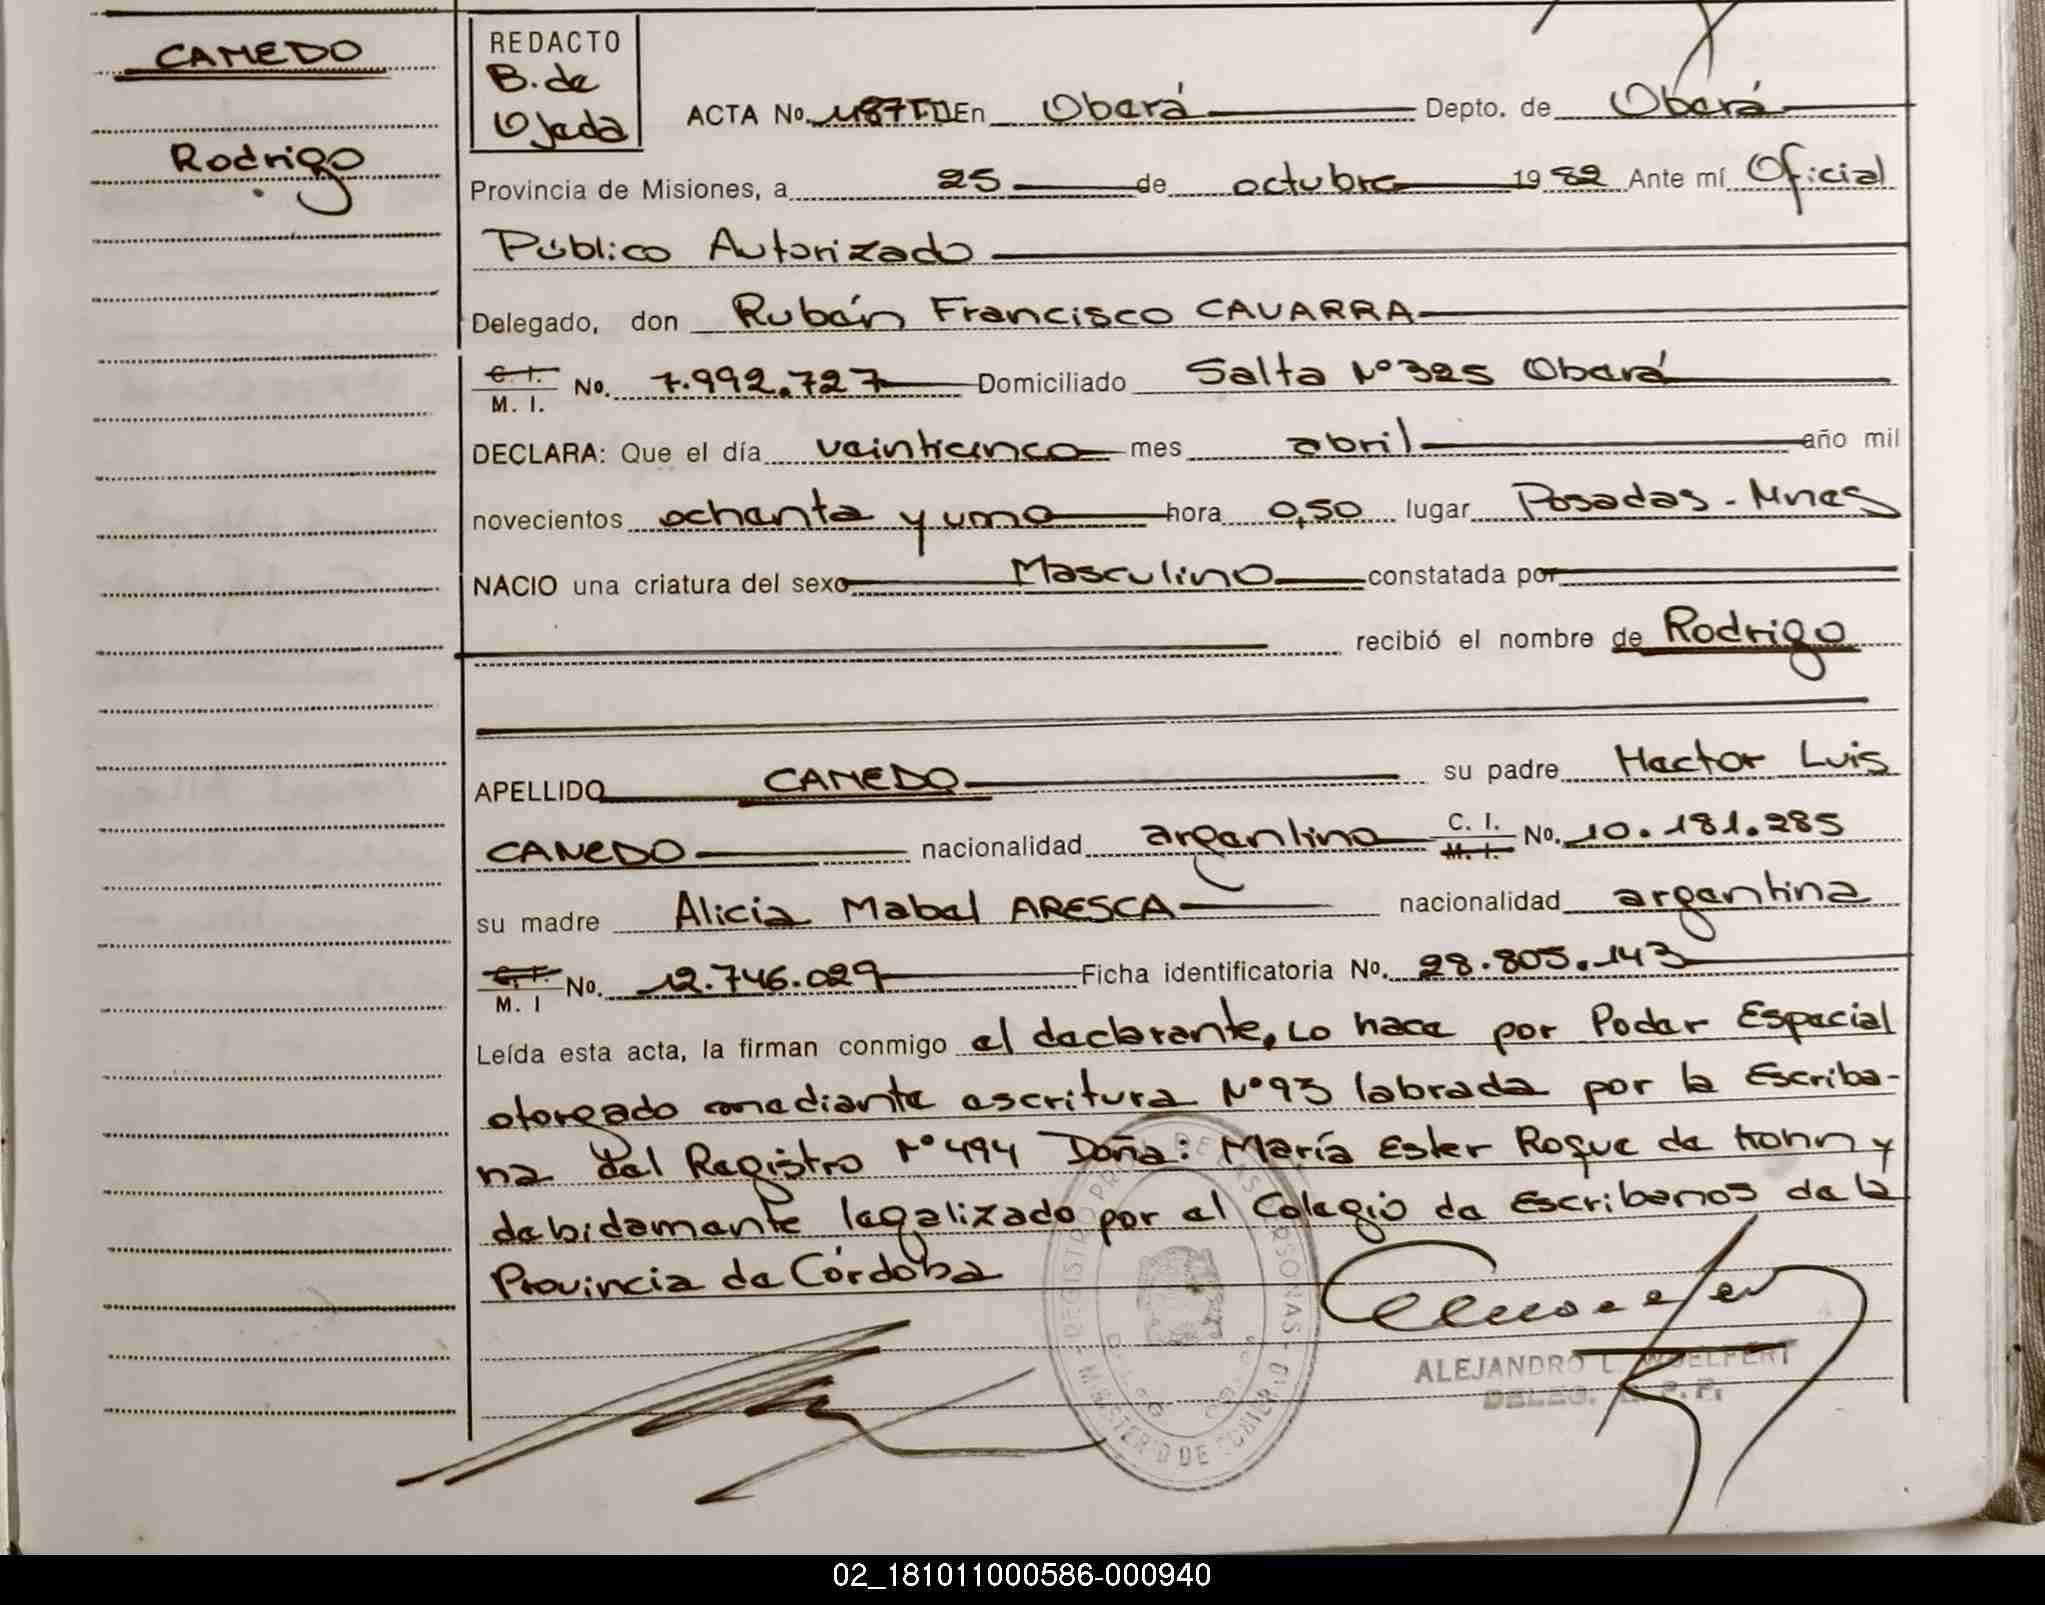 CANEDO
Rodrigo
REDACTO
B. de
Ojeda
ACTA No. 1187 TII En Oberá Depto. de Oberá
Provincia de Misiones, a 25 de octubre 1982 Ante mí Oficial
Público Autorizado
Delegado, don Rubén Francisco CAVARRA
C. I. M. I. No. 7.992.727 Domiciliado Salta Nº 325 Oberá
DECLARA: Que el día veinticinco mes abril año mil
novecientos ochenta y uno hora 0,50 lugar Posadas - Mnes
NACIO una criatura del sexo Masculino constatada por
recibió el nombre de Rodrigo
APELLIDO CANEDO su padre Hector Luis
CANEDO nacionalidad argentino C. I. M. I. No. 10.181.285
su madre Alicia Mabel ARESCA nacionalidad argentina
C. I. M. I No. 12.746.029 Ficha identificatoria No. 28.805.143
Leída esta acta, la firman conmigo el declarante, Lo hace por Poder Especial
otorgado mediante escritura Nº 93 labrada por la Escriba-
na del Registro Nº 494 Doña: María Ester Roque de y
debidamente legalizado por el Colegio de Escribanos de la
Provincia de Córdoba
REGISTRO PROV. DE LAS PERSONAS
MINISTERIO DE GOBIERNO
ALEJANDRO L. WOELFERT
DELEG. R. P. P.
02_181011000586-000940